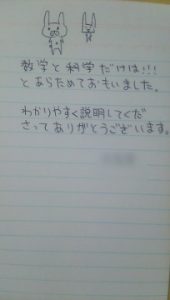 数学と科学だけは!!!
とあらためておもいました。
わかりやすく説明してくだ
さってありがとうございます。